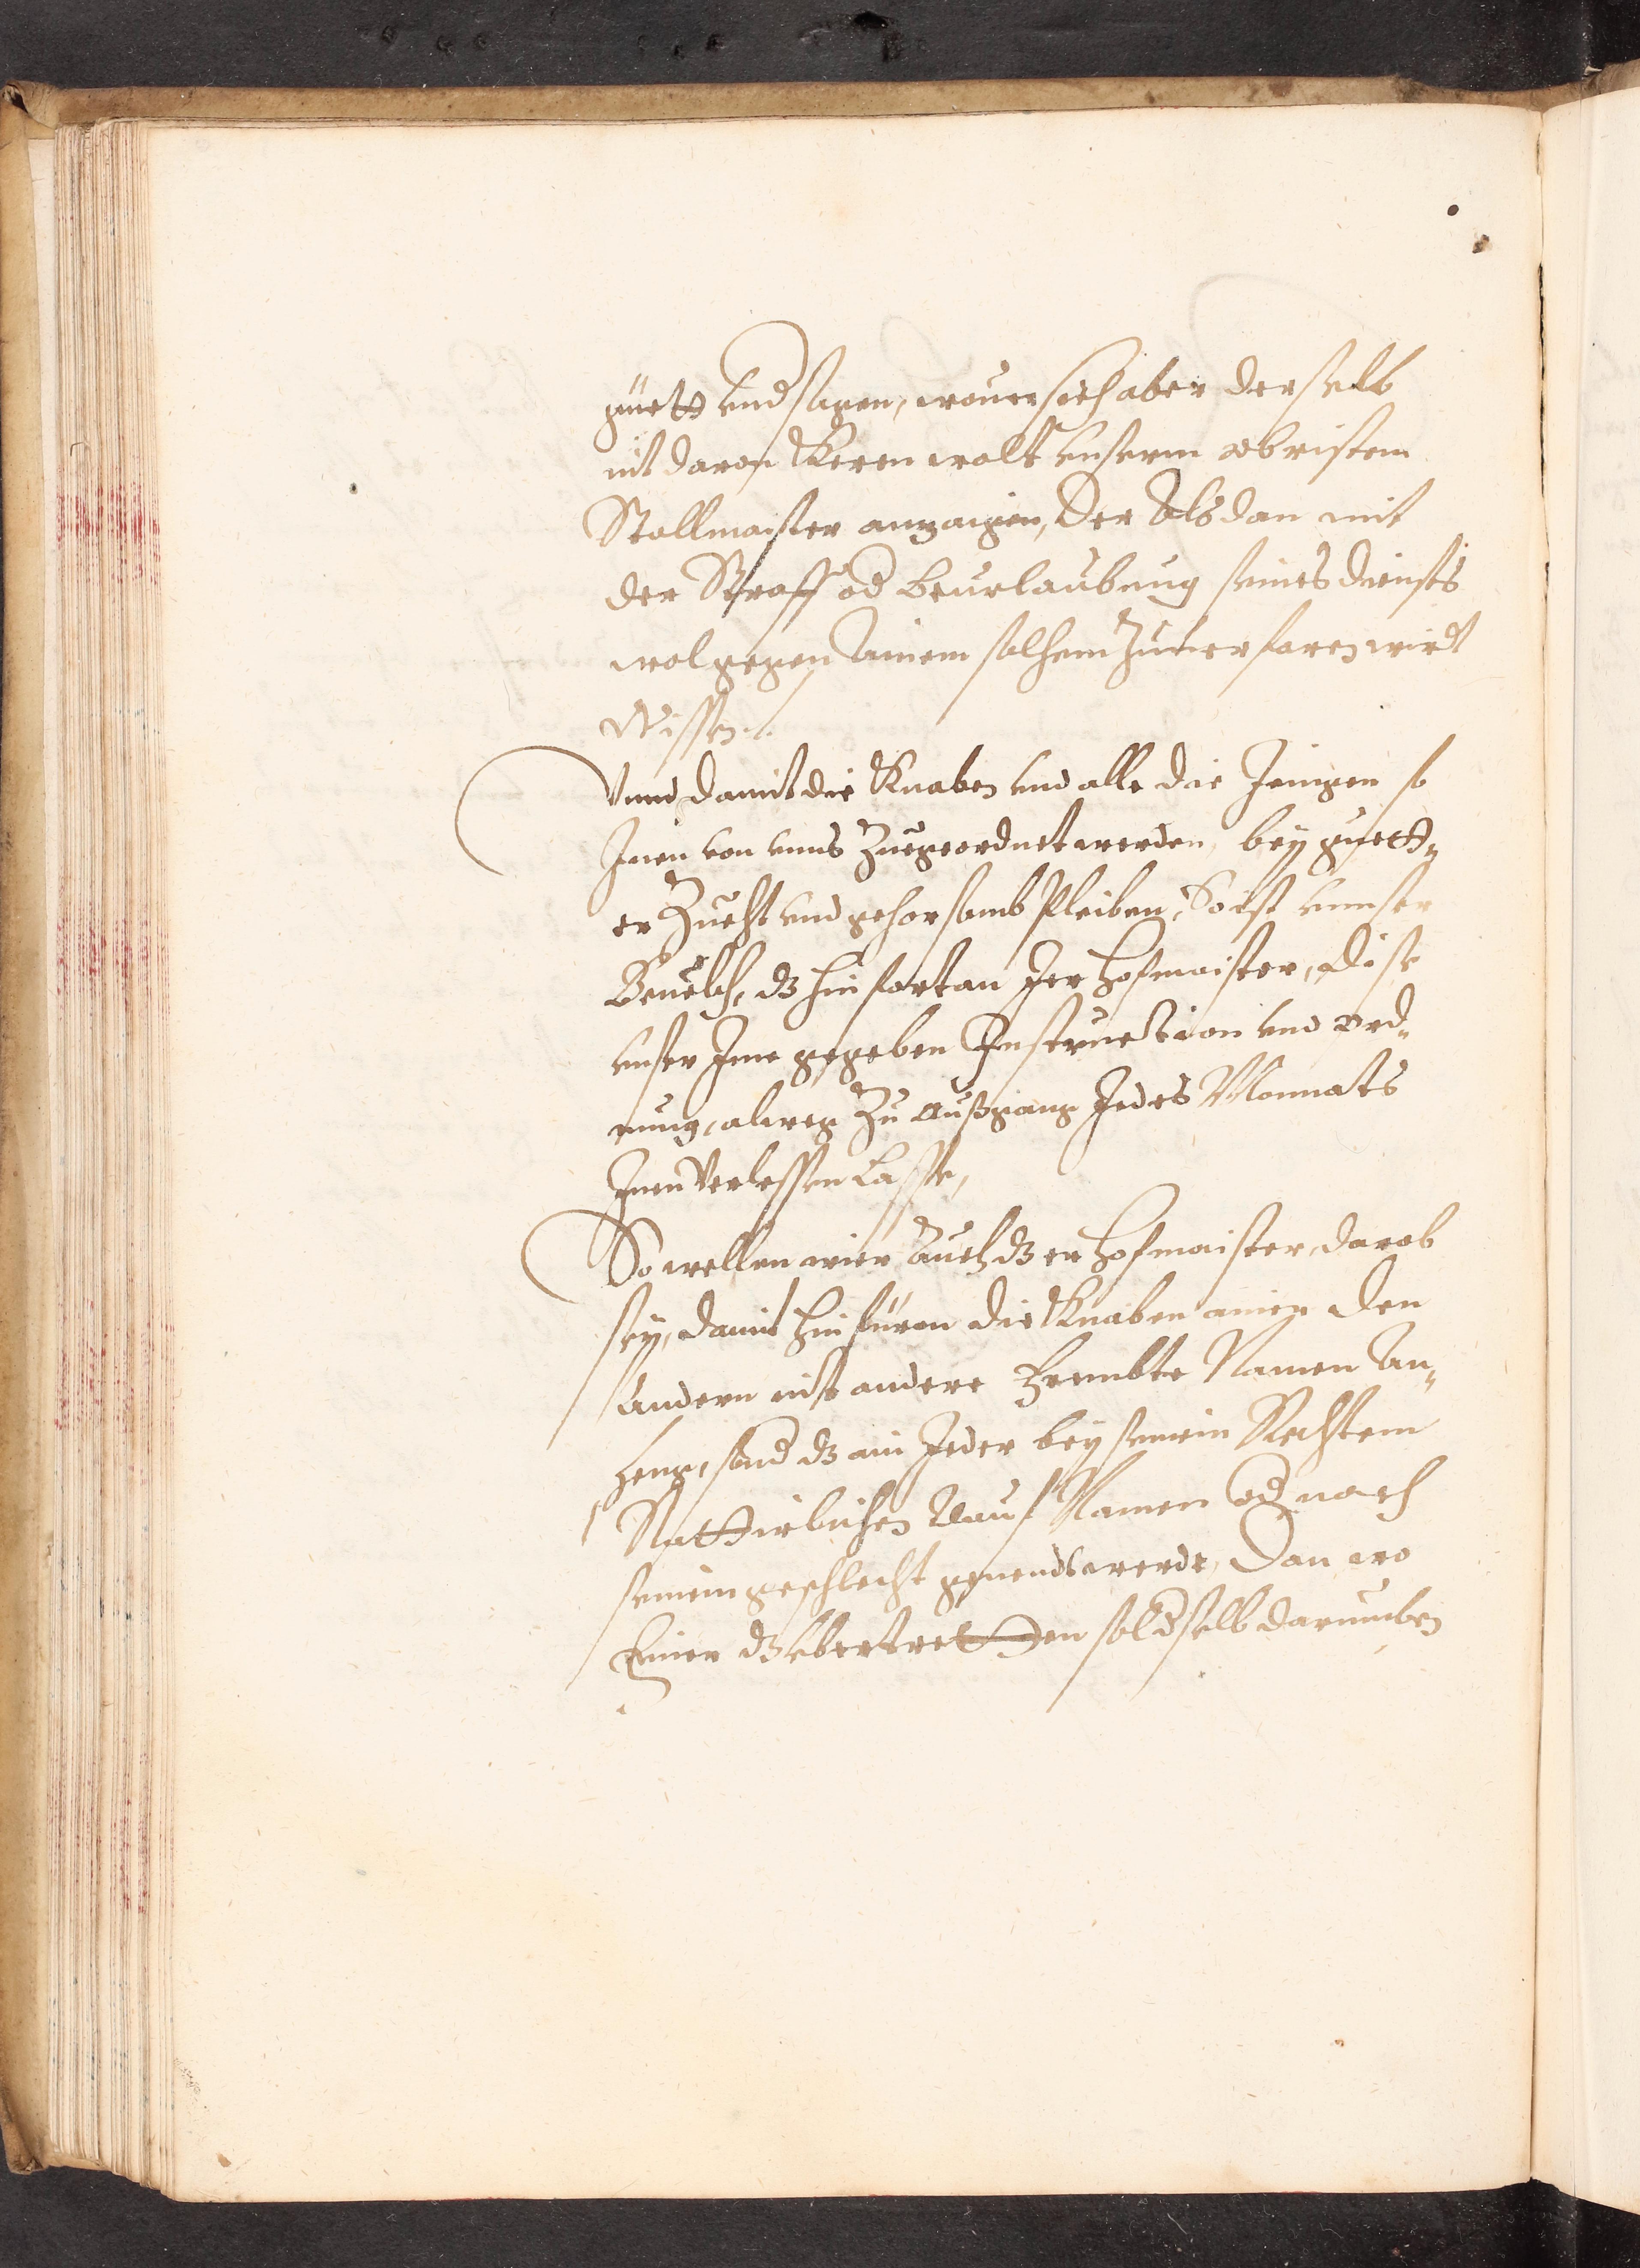 guett vnd sagen, wouer sich aber derselb
nit daran Keren wolt vnserm obristem
Stallmaister anzaigen, Der Alsdan mit
der Straff od beurlaubung seines diensts
wol gegen Ainem solhem Zuuerfaren wirdt
Wissen./.
Vnnd damit die Knaben vnd alle die Jenigen so
Inen von vnns Zuegeordnet werden, bey guett„
er Zucht vnd gehorsamb Pleiben, So ist vnnser
Beuelch, dz hinfortan Jer Hofmaister, Dise
vnser Ime gegeben Instruction vnd ord„
nung, alweg Zu Außgang Jedes Monnats
Inen Verlessen Lasse,
So wellen wier Auch dz er Hofmaister, darob
sey, damit hinfüron die Knaben ainer den
Andern nit andere Frembte Namen An„
heng, sond dz ain Jeder bey seinem Rechtem
Nattirlichen Tauf Namen od nach
seinem geschlecht genendt werde, Dan wo
Einer dz vbertretten sol dselb darumben